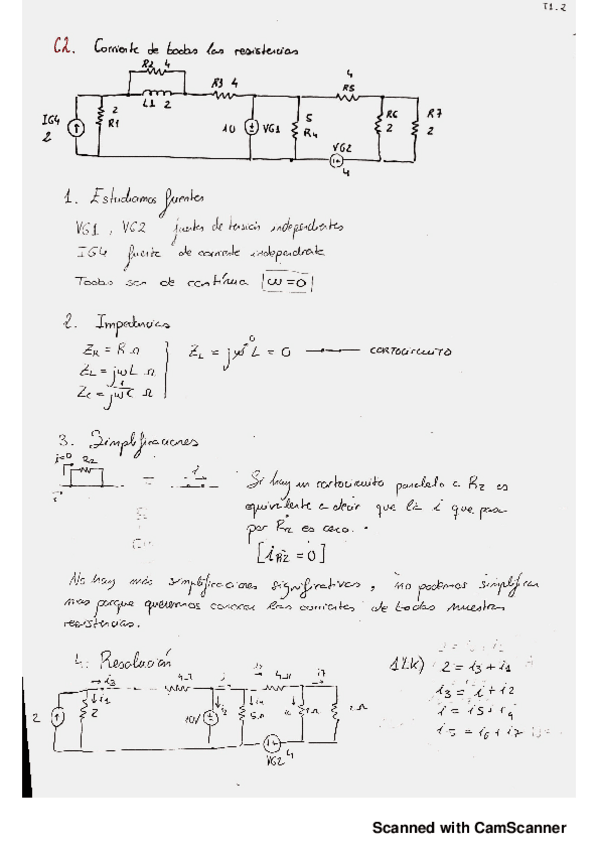 T1.2
C2. Corriente de todas las resistencias
R2 4
R3 4
4
R5
L1 2
IG4
2
2
R1
10
VG1
5
R4
R6
2
R7
2
VG2
4
1. Estudiamos fuentes
VG1, VG2 fuentes de tensión independientes
IG4 fuente de corriente independiente
Todas son de contínua |ω=0|
2. Impedancias
ZR = R Ω
ZL = jωL Ω
ZC = 1/jωC Ω
ZL = jω L = 0
0
CORTOCIRCUITO
3. Simplificaciones
i=0 R2
=
i
i
Si hay un cortocircuito paralelo a R2 es
equivalente a decir que la i que pasa
por R2 es cero.
[iR2 = 0]
No hay más simplificaciones significativas, no podemos simplificar
mas porque queremos conocer las corrientes de todas nuestras
resistencias.
4. Resolución
i3
4Ω
i
4Ω
i7
2
i1
2
10V
5Ω
2Ω
2Ω
VG2
4
1LK) 2 = i3 + i1
i3 = i + i2
i = i5 + i4
i5 = i6 + i7
Scanned with CamScanner